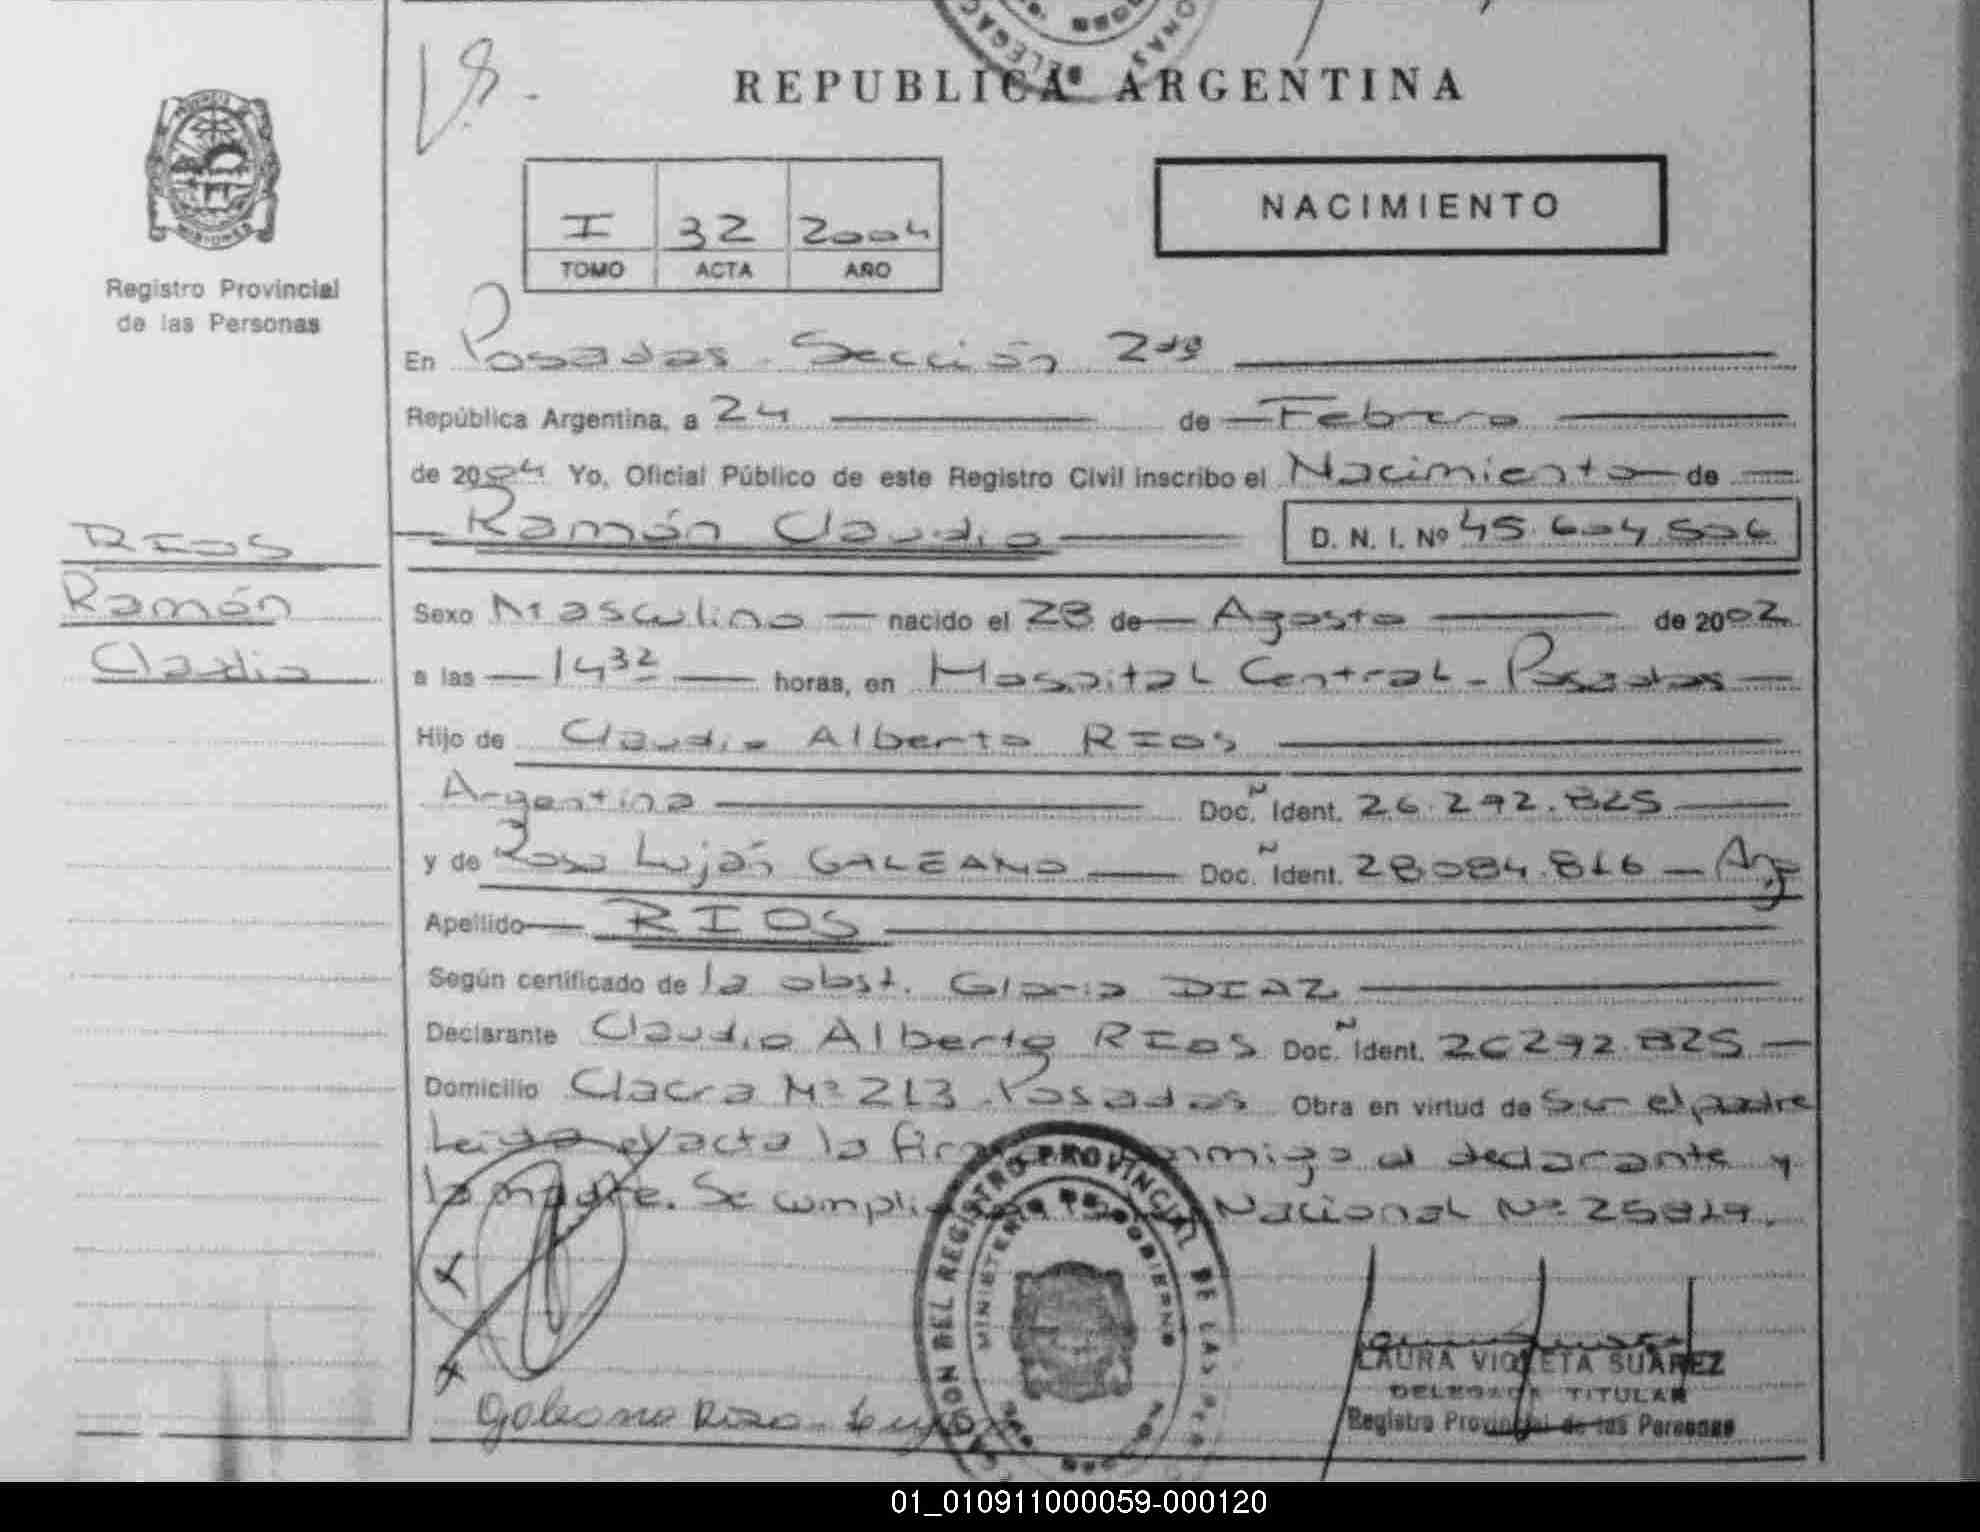 REPUBLICA ARGENTINA
NACIMIENTO
I 32 2004
TOMO ACTA AÑO
Registro Provincial
de las Personas
En Posadas - Sección 2da
República Argentina, a 24 de Febrero
de 2004 Yo, Oficial Público de este Registro Civil inscribo el Nacimiento de
Ramón Claudio D. N. I. Nº 45.604.506
RIOS
Ramón
Claudio
Sexo Masculino nacido el 28 de Agosto de 2002
a las 14 32 horas, en Hospital Central - Posadas
Hijo de Claudio Alberto RIOS
Argentina Doc. Ident. 26.292.825
y de Rosa Luján GALEANO Doc. Ident. 28084.816 - Arg
Apellido RIOS
Según certificado de la obst. Gloria DIAZ
Declarante Claudio Alberto RIOS Doc. Ident. 26292.825
Domicilio Chacra Nº 213 - Posadas Obra en virtud de Ser el padre
Leída el acta la conmigo el declarante y
la madre. Se Nacional Nº 25819.
REGISTRO PROVINCIAL DE LAS
MINISTERIO DE GOBIERNO
LAURA VIOLETA SUAREZ
DELEGADA TITULAR
Registro Provincial de las Personas
Galeano Rosa Lujan
01_010911000059-000120